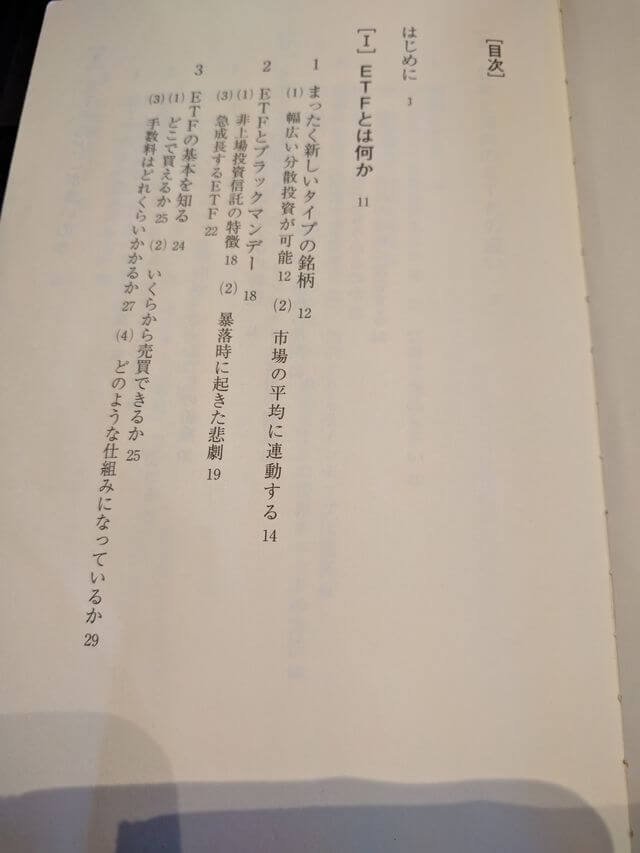 ［目次］
はじめに 3
［Ⅰ］ＥＴＦとは何か 11
1 まったく新しいタイプの銘柄 12
(1) 幅広い分散投資が可能 12 (2) 市場の平均に連動する 14
2 ＥＴＦとブラックマンデー 18
(1) 非上場投資信託の特徴 18 (2) 暴落時に起きた悲劇 19
(3) 急成長するＥＴＦ 22
3 ＥＴＦの基本を知る 24
(1) どこで買えるか 25 (2) いくらから売買できるか 25
(3) 手数料はどれくらいかかるか 27 (4) どのような仕組みになっているか 29